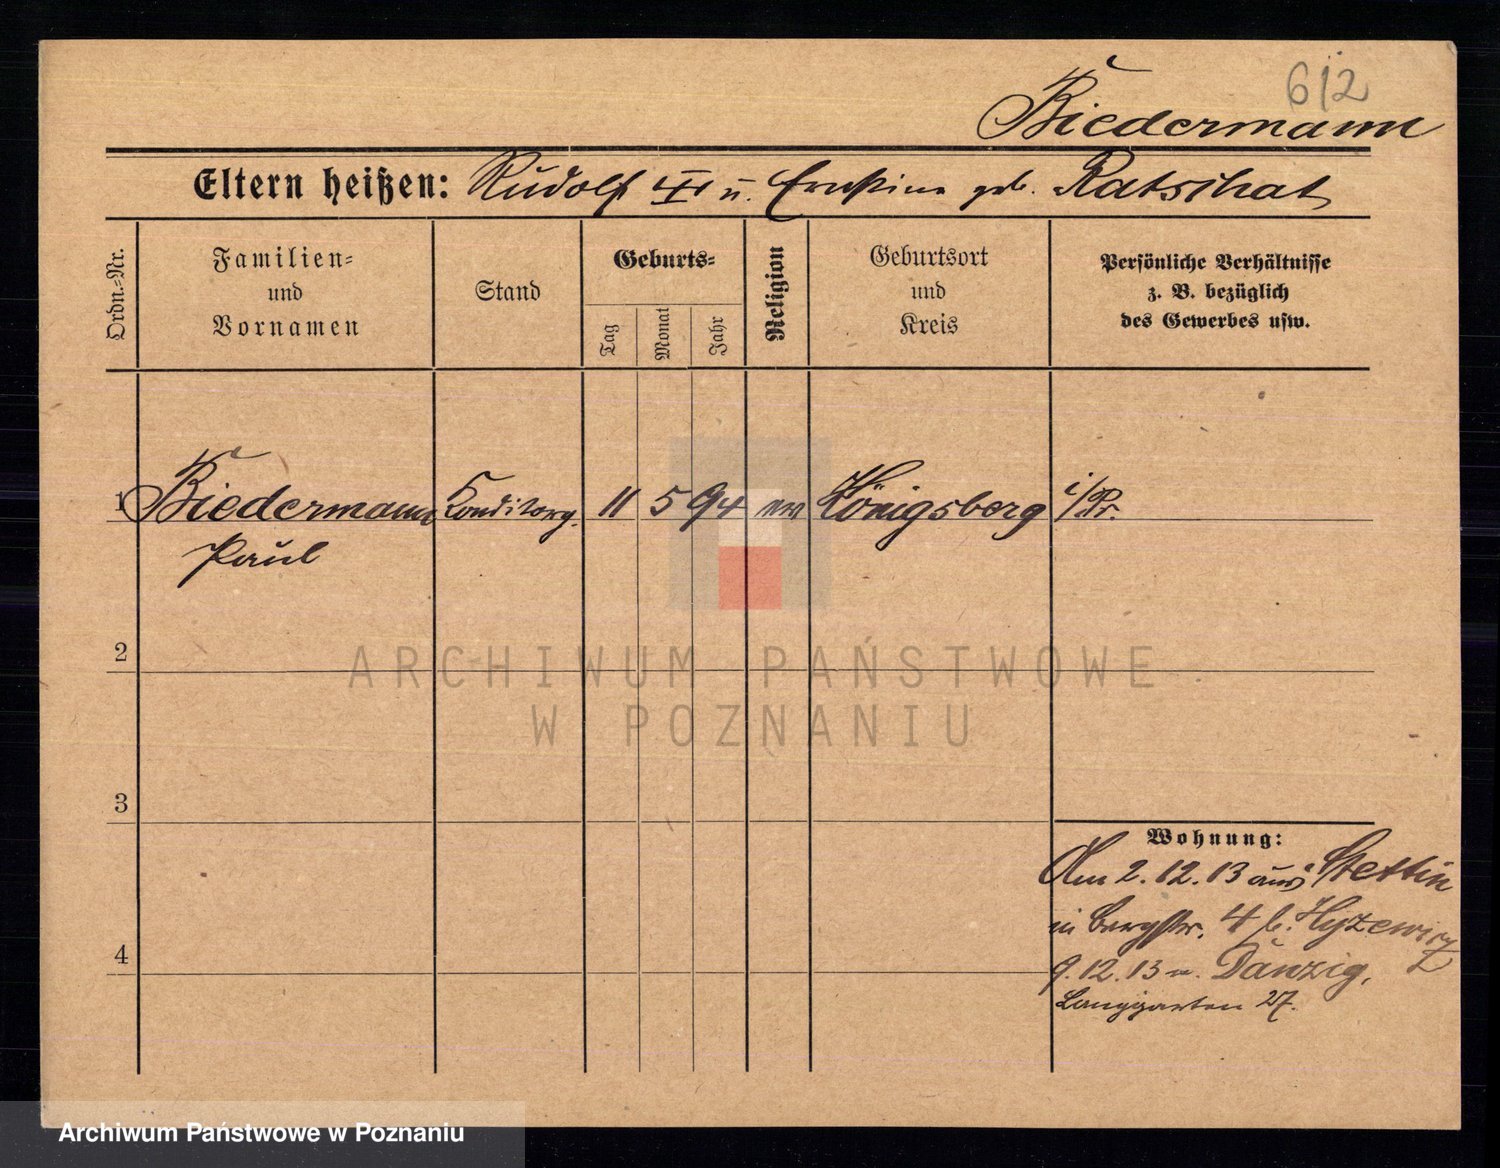 612
Biedermann
Eltern heißen: Rudolf u. Ernestine geb. Ratschat
Ordn.-Nr.
Familien-
und
Vornamen
Stand
Geburts-
Tag
Monat
Jahr
Religion
Geburtsort
und
Kreis
Persönliche Verhältnisse
z. B. bezüglich
des Gewerbes usw.
1 Biedermann Konditorg. 11 5 94 ev Königsberg i/Pr.
Paul
2
ARCHIWUM PAŃSTWOWE
W POZNANIU
3
Wohnung:
Am 2.12.13 aus Stettin
in Bergstr. 4 b. Hyzewicz
4
9.12.13 n. Danzig,
Langgarten 27.
Archiwum Państwowe w Poznaniu